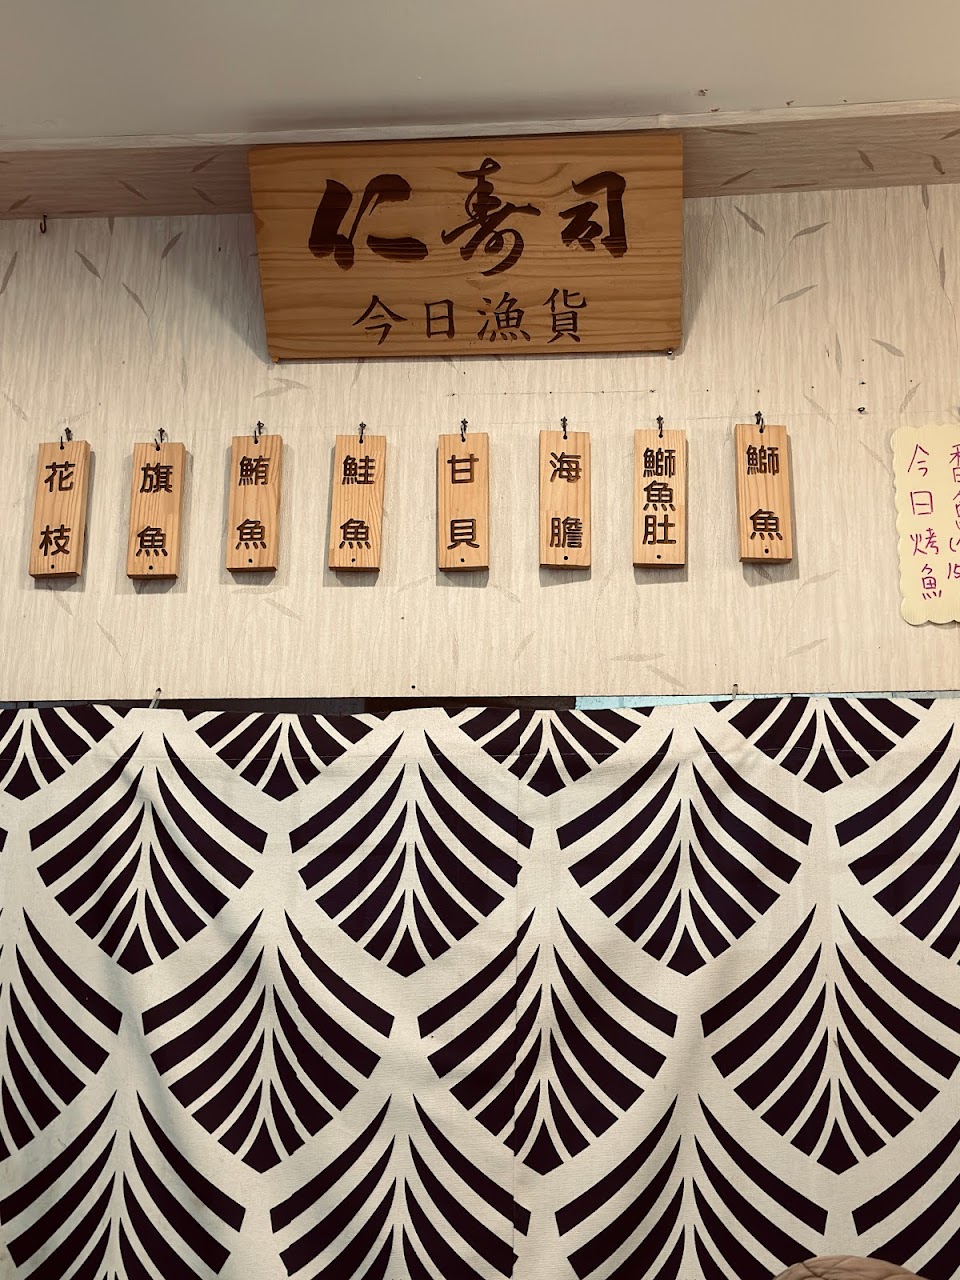 仁壽司
今日漁貨
花枝
旗魚
鮪魚
鮭魚
甘貝
海膽
鰤魚肚
鰤魚
今日烤魚